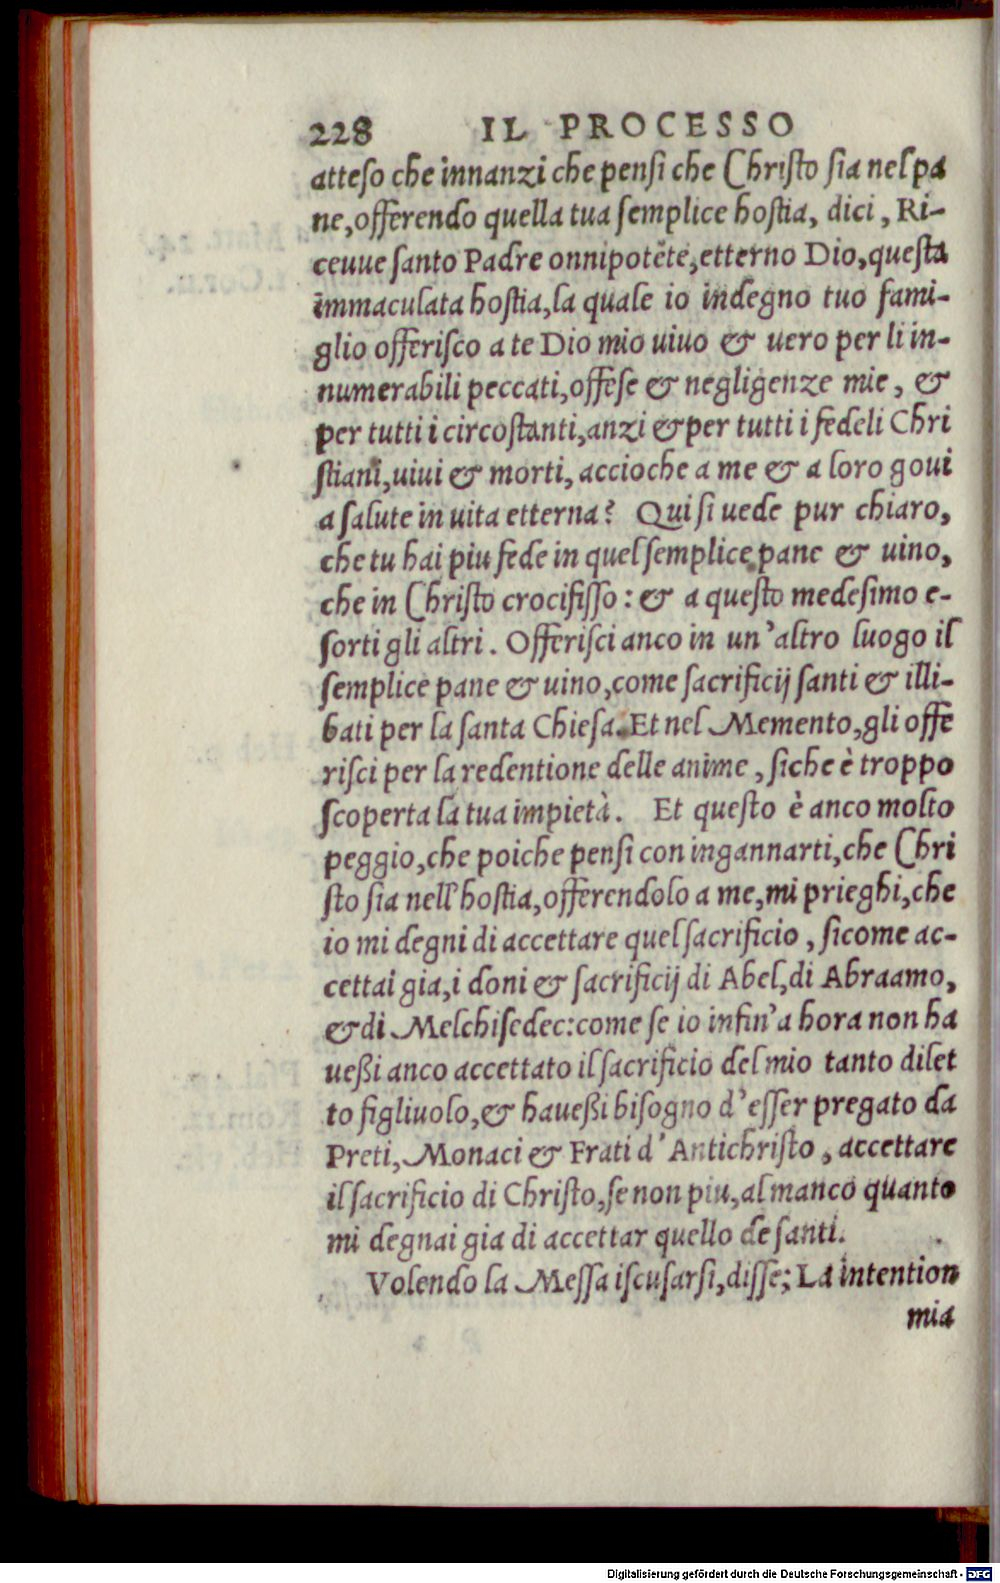 228 IL PROCESSO
atteso che innanzi che pensi che Christo sia nel pa
ne, offerendo quella tua semplice hostia, dici, Ri-
ceuue santo Padre onnipotẽte, etterno Dio, questa
immaculata hostia, la quale io indegno tuo fami-
glio offerisco a te Dio mio uiuo & uero per li in-
numerabili peccati, offese & negligenze mie, &
per tutti i circostanti, anzi & per tutti i fedeli Chri
stiani, uiui & morti, accioche a me & a loro goui
a salute in uita etterna? Qui si uede pur chiaro,
che tu hai piu fede in quel semplice pane & uino,
che in Christo crocifisso: & a questo medesimo e-
sorti gli altri. Offerisci anco in un'altro luogo il
semplice pane & uino, come sacrificij santi & illi-
bati per la santa Chiesa. Et nel Memento, gli offe
risci per la redentione delle anime, siche è troppo
scoperta la tua impietà. Et questo è anco molto
peggio, che poiche pensi con ingannarti, che Chri
sto sia nell'hostia, offerendolo a me, mi prieghi, che
io mi degni di accettare quel sacrificio, sicome ac-
cettai gia, i doni & sacrificij di Abel, di Abraamo,
& di Melchisedec: come se io infin'a hora non ha
ueßi anco accettato il sacrificio del mio tanto dilet
to figliuolo, & haueßi bisogno d'esser pregato da
Preti, Monaci & Frati d'Antichristo, accettare
il sacrificio di Christo, se non piu, almanco quanto
mi degnai gia di accettar quello de santi.
Volendo la Messa iscusarsi, disse; La intention
mia
Digitalisierung gefördert durch die Deutsche Forschungsgemeinschaft - DFG